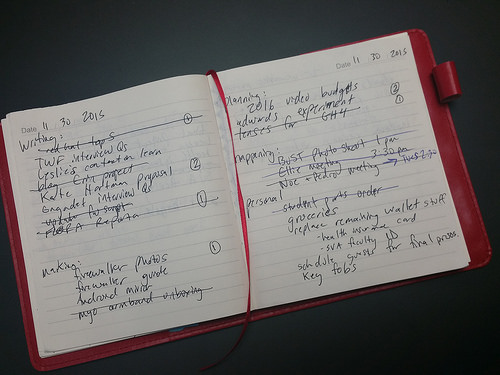 Date 11 30 2015
Writing:
red hat tops ①
IWF interview Qs
Leslie's content on learn
blog Erin project
Katie Hartman proposal ②
Engadget interview Qs
update for script
Reports ①
making:
firewalker photos ①
firewalker guide
android mirror
myo armband unboxing
Date 11 30 2015
planning:
2016 video budgets
adwords experiment ②
lenses for GH4 ①
happening:
BUST photo shoot 1 pm
Ellie meeting 3:30 pm
NOC + Pedro meeting → WED 2:30
personal
student parts order
groceries
replace remaining wallet stuff
- health insurance card
- SVA faculty ID
schedule guests for final prezos.
key fobs